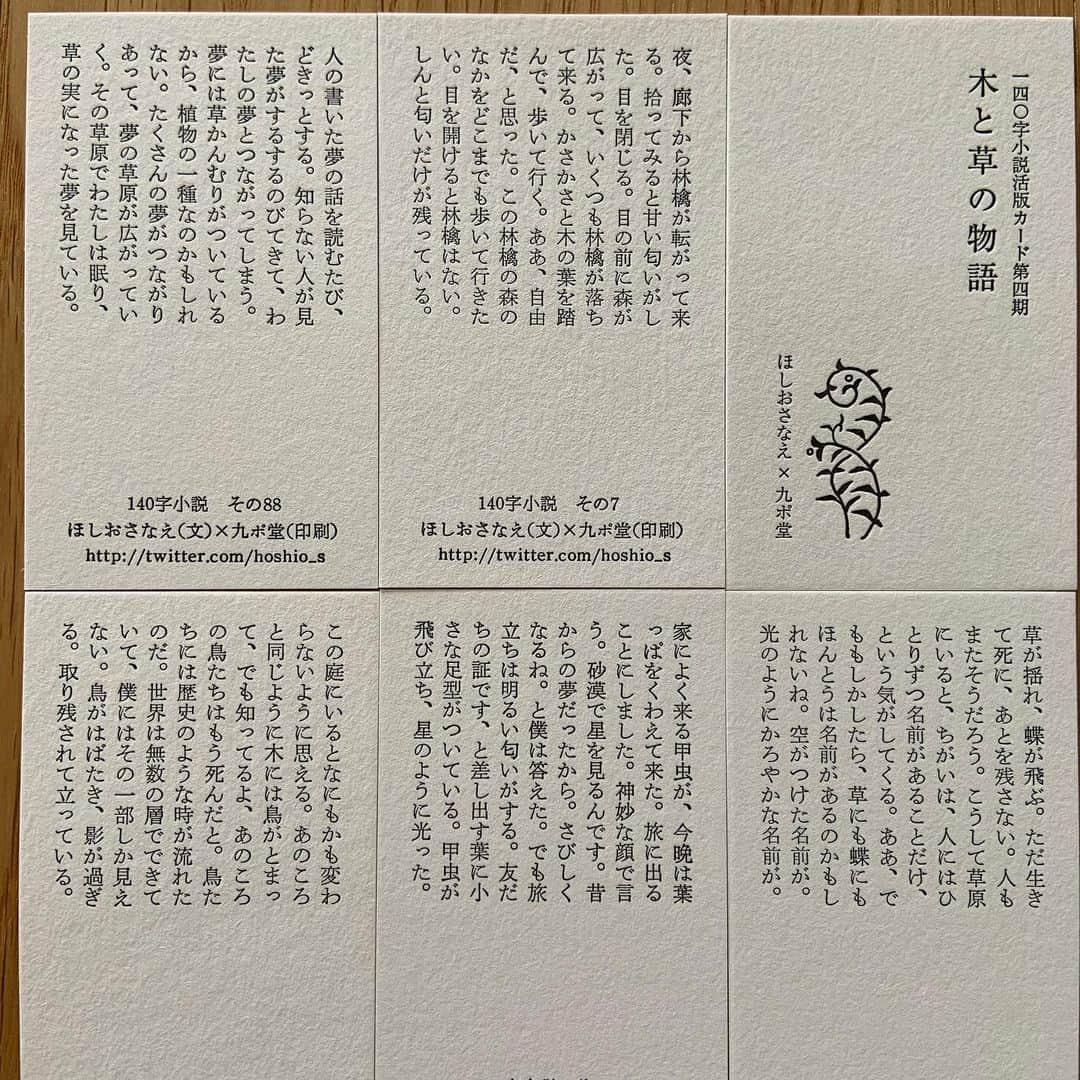 一四〇字小説活版カード第四期
木と草の物語
ほしおさなえ × 九ポ堂
夜、廊下から林檎が転がって来
る。拾ってみると甘い匂いがし
た。目を閉じる。目の前に森が
広がって、いくつも林檎が落ち
て来る。かさかさと木の葉を踏
んで、歩いて行く。ああ、自由
だ、と思った。この林檎の森の
なかをどこまでも歩いて行きた
い。目を開けると林檎はない。
しんと匂いだけが残っている。
140字小説 その7
ほしおさなえ(文)×九ポ堂(印刷)
http://twitter.com/hoshio_s
人の書いた夢の話を読むたび、
どきっとする。知らない人が見
た夢がするするのびてきて、わ
たしの夢とつながってしまう。
夢には草かんむりがついている
から、植物の一種なのかもしれ
ない。たくさんの夢がつながり
あって、夢の草原が広がってい
く。その草原でわたしは眠り、
草の実になった夢を見ている。
140字小説 その88
ほしおさなえ(文)×九ポ堂(印刷)
http://twitter.com/hoshio_s
草が揺れ、蝶が飛ぶ。ただ生き
て死に、あとを残さない。人も
またそうだろう。こうして草原
にいると、ちがいは、人にはひ
とりずつ名前があることだけ、
という気がしてくる。ああ、で
ももしかしたら、草にも蝶にも
ほんとうは名前があるのかもし
れないね。空がつけた名前が。
光のようにかろやかな名前が。
家によく来る甲虫が、今晩は葉
っぱをくわえて来た。旅に出る
ことにしました。神妙な顔で言
う。砂漠で星を見るんです。昔
からの夢だったから。さびしく
なるね。と僕は答えた。でも旅
立ちは明るい匂いがする。友だ
ちの証です、と差し出す葉に小
さな足型がついている。甲虫が
飛び立ち、星のように光った。
この庭にいるとなにもかも変わ
らないように思える。あのころ
と同じように木には鳥がとまっ
て、でも知ってるよ、あのころ
の鳥たちはもう死んだと。鳥た
ちには歴史のような時が流れた
のだ。世界は無数の層でできて
いて、僕にはその一部しか見え
ない。鳥がはばたき、影が過ぎ
る。取り残されて立っている。